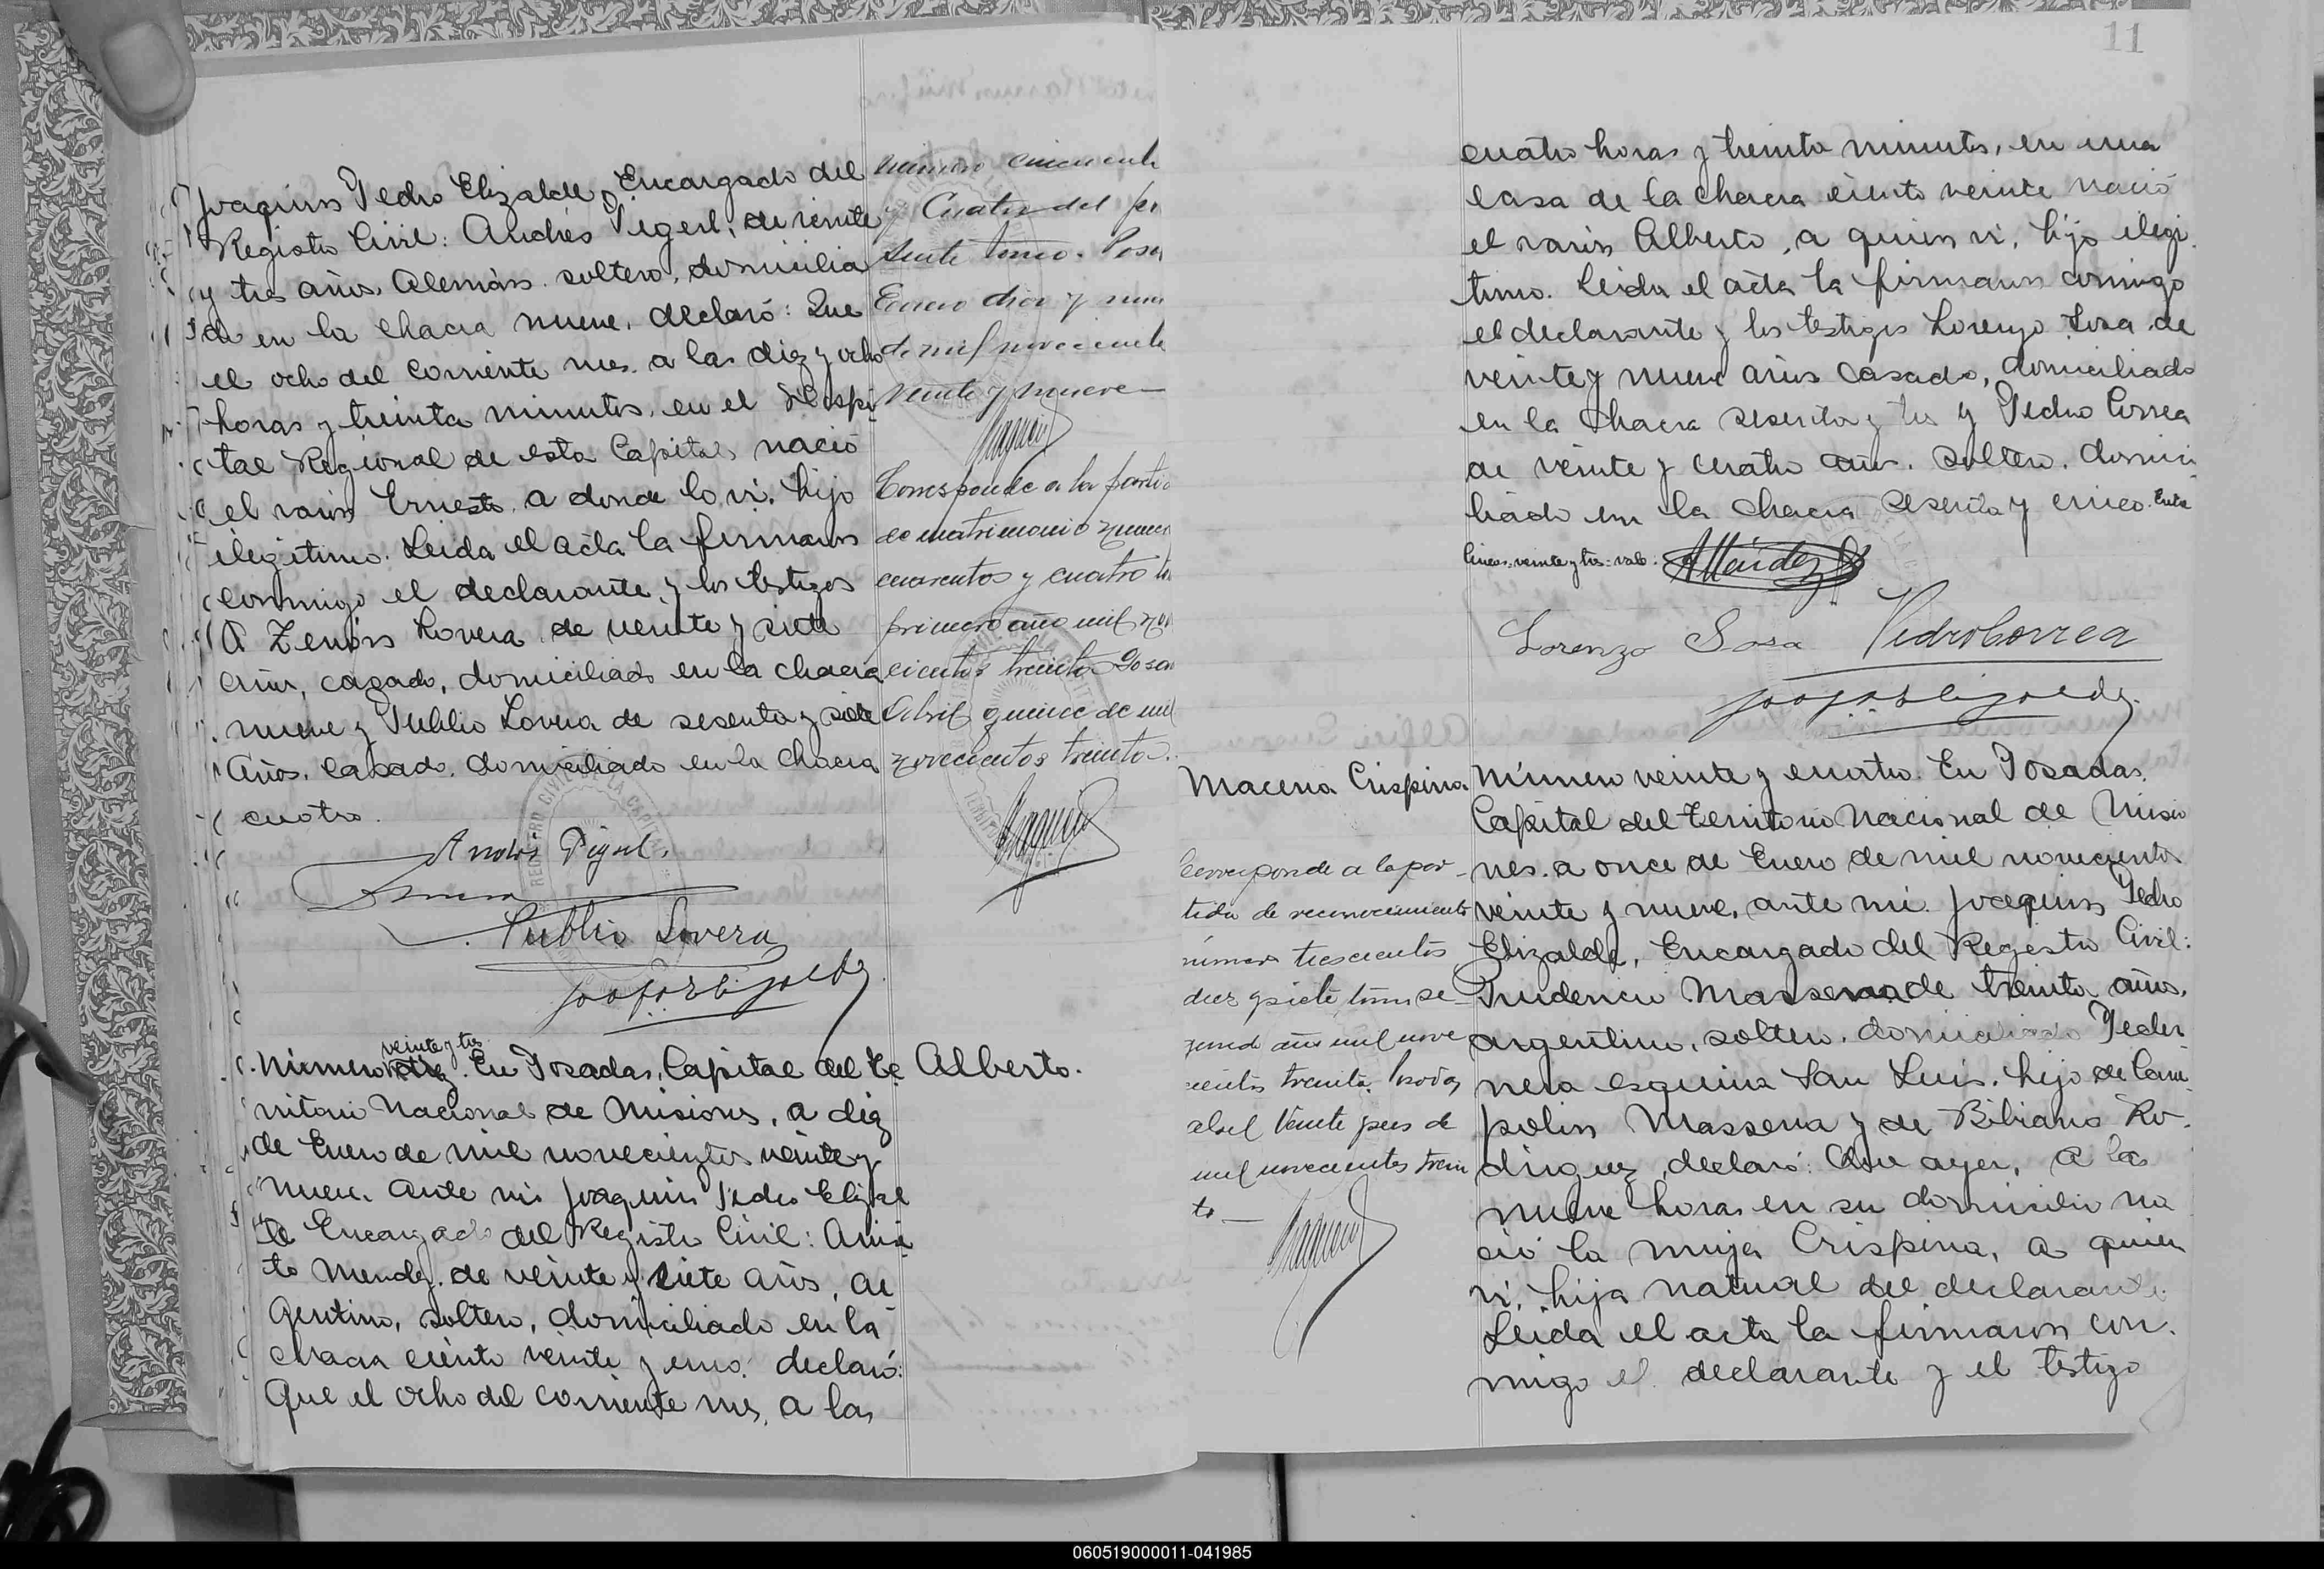 Joaquin Pedro Elizalde, Encargado del
Registro Civil: Andrés Pigerl, de veinte
y tres años, Alemán, soltero, domicilia
do en la chacra nueve, declaró: Que
el ocho del corriente mes, a las diez y ocho
horas y treinta minutos, en el Hospi
tal Regional de esta Capital, nació
el varón Ernesto, a donde lo vi, hijo
ilegitimo. Leida el acta la firmaron
conmigo el declarante, y los testigos
Zenón Lovera de veinte y siete
años, cazado, domiciliado en la chacra
nueve y Publio Lovera de sesenta y siete
años, casado, domiciliado en la chacra
cuatro.
Publio Lovera
numero cincuenta
y Cuatro del pr
sente tomo. Posa
Enero diez y nue
de mil novecientos
veinte y nueve
Corresponde a la parti
de matrimonio numer
cuarentos y cuatro to
primero año mil no
cientos treinta Posa
Abril quince de mil
novecientos treinta.
veinte y tres
Número diez. En Posadas, Capital del Te
rritorio Nacional de Misiones, a diez
de Enero de mil novecientos veinte y
nueve. Ante mi Joaquin Pedro Elizal
de Encargado del Registro Civil:
to Mendez, de veinte y siete años, ar
gentino, soltero, domiciliado en la
chacra ciento veinte y uno: declaró:
Que el ocho del corriente mes, a las
Alberto.
11
cuatro horas y treinta minutos, en una
casa de la chacra ciento veinte nació
el varón Alberto, a quien vi, hijo ilegi
timo. Leida el acta la firmaron conmigo
el declarante y los testigos Lorenzo Sosa de
veinte y nueve años casado, domiciliado
en la chacra sesenta y tres y Pedro Correa
de veinte y cuatro años. Soltero. domici
liado en la chacra sesenta y cinco. Entre
lineas: veinte y tres: vale.
AMéndez
Lorenzo Sosa Pedro Correa
Macena Crispina.
Corresponde a la par
tida de reconocimiento
número trescientos
diez y siete tomo se
gundo año mil nove
cientos treinta. Posadas
abril veinte de
mil novecientos trein
ta
Número veinte y cuatro. En Posadas,
Capital del Territorio Nacional de Misio
nes, a once de Enero de mil novecientos
veinte y nueve, ante mi Joaquin Pedro
Elizalde, Encargado del Registro Civil:
Prudencio Massena de treinta años,
argentino, soltero, domiciliado Peder
nera esquina San Luis, hijo de Cam
polin Massena y de Bibiana Ro
driguez, declaró: Que ayer, a las
nueve horas en su domicilio na
ció la mujer Crispina, a quien
vi, hija natural del declarante.
Leida el acta la firmaron con
migo el declarante y el testigo
060519000011-041985